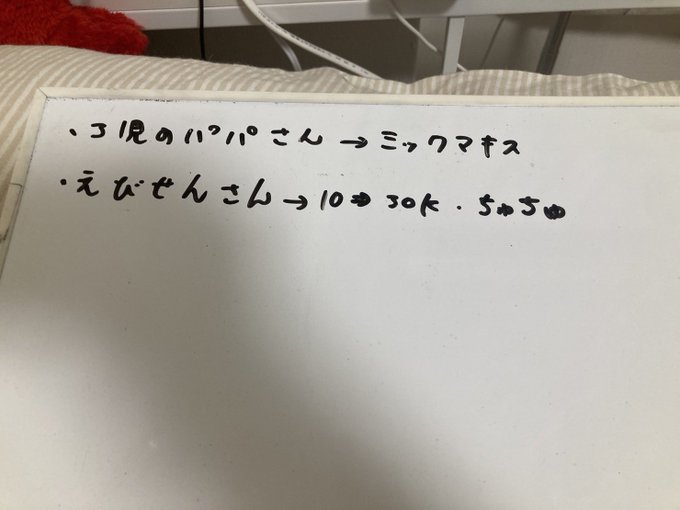 ・3児のパパさん→ミックマキス
・えびせんさん→10→30K・ちゅちゅ